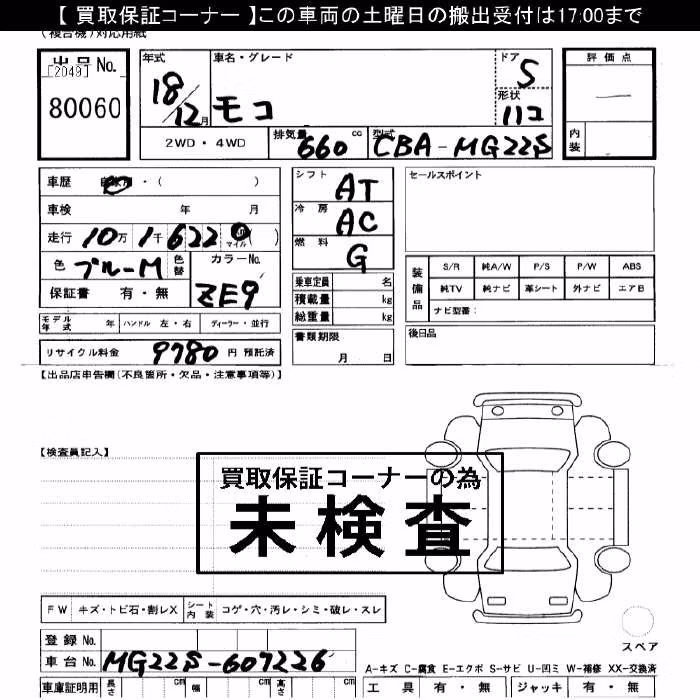 【 買取保証コーナー 】この車両の土曜日の搬出受付は17:00まで
(複合機)対応用紙
出品No.
[2049]
80060
年式 車名・グレード ドア 5
18/12月 モコ 形状 ハコ
2WD・4WD 排気量 660 cc 型式 CBA-MG22S
評価点
—
内装
車歴 自家用・( )
車検 年 月
走行 10万1千622 km マイル ( )
色 ブルーM 色替 カラーNo. ZE9
保証書 有・無
モデル年式 年 ハンドル 左・右 ディーラー・並行
リサイクル料金 9780 円 預託済
シフト AT
冷房 AC
燃料 G
乗車定員 名
積載量 kg
総重量 kg
書類期限
月 日
セールスポイント
装備品 S/R 純A/W P/S P/W ABS
純TV 純ナビ 革シート 外ナビ エアB
ナビ型番:
後日品
【出品店申告欄(不良箇所・欠品・注意事項等)】
【検査員記入】
買取保証コーナーの為
未検査
FW キズ・トビ石・割レX シート内装 コゲ・穴・汚レ・シミ・破レ・スレ
スペア
登録No.
車台No. MG22S-607226
A-キズ C-腐食 E-エクボ S-サビ U-凹ミ W-補修 XX-交換済
車庫証明用 長さ cm 幅 cm 高さ cm
工具 有・無 ジャッキ 有・無